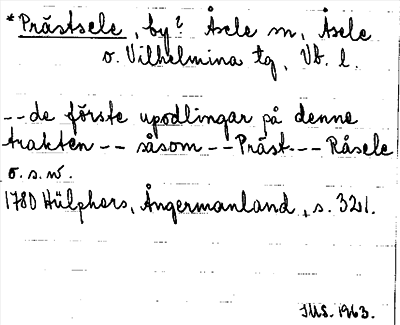 *Prästsele, by? Åsele sn, Åsele
o. Vilhelmina tg, Vb. l.
--de förste upodlingar på denne
trakten -- såsom --Präst--- Råsele
o.s.v.
1780 Hülphers, Ångermanland, s. 321.
IMS. 1963.